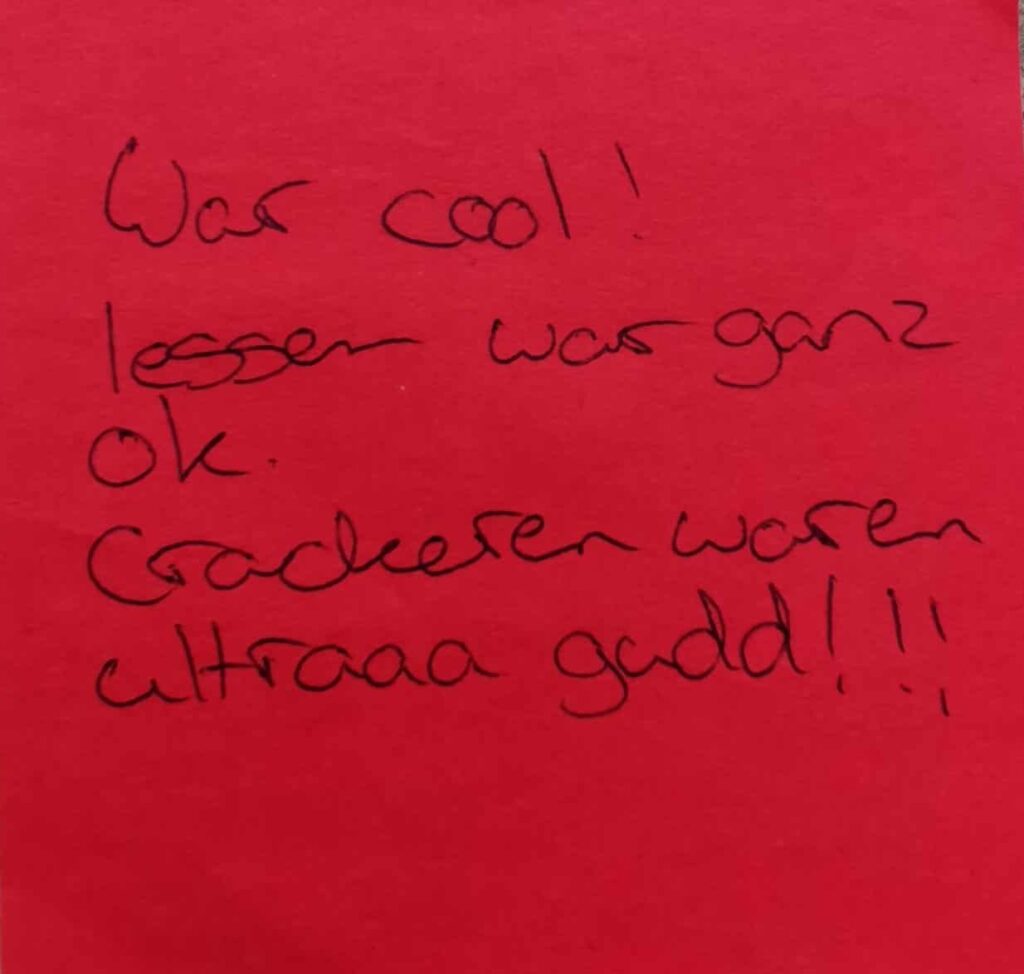 War cool!
Iessen war ganz
ok.
Crackeren waren
ultraaa gudd!!!